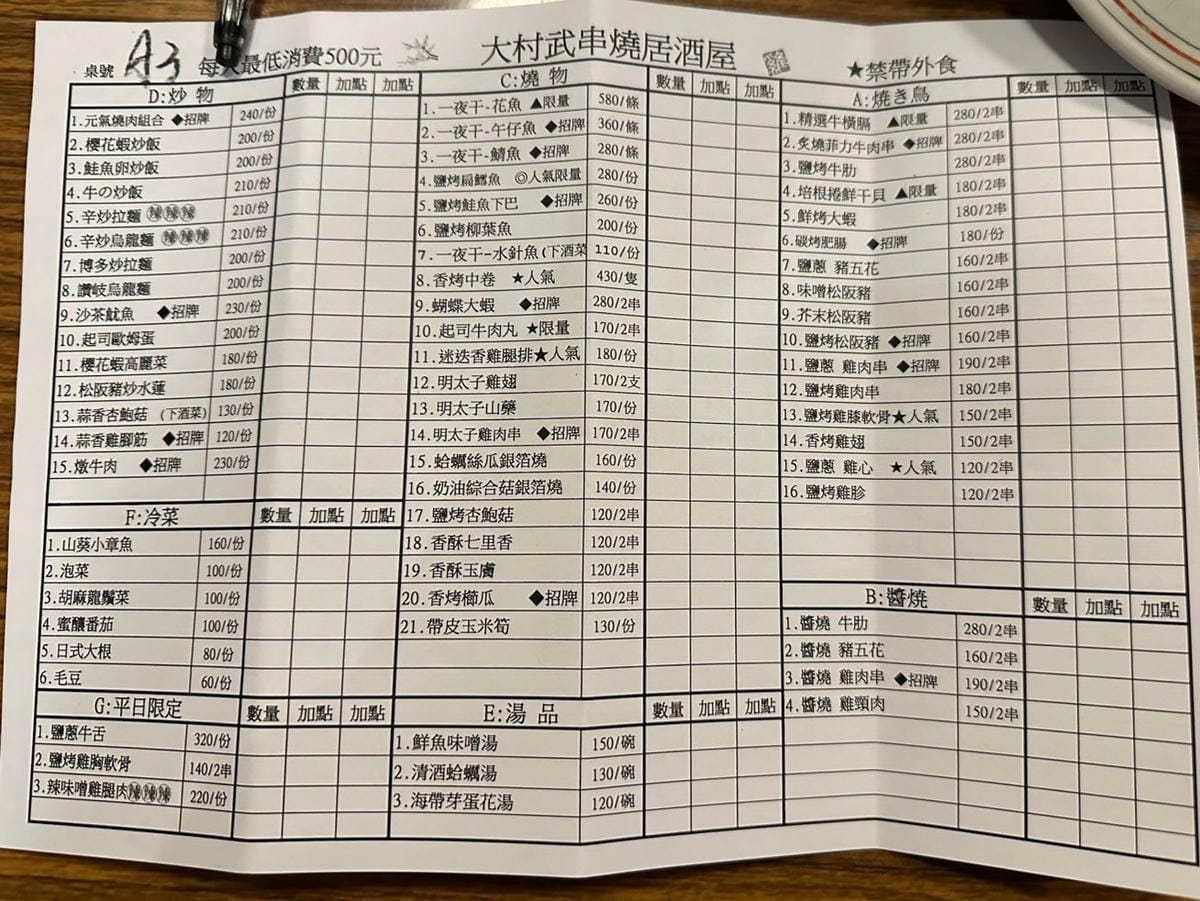 桌號 A3 每人最低消費500元 大村武串燒居酒屋 ★禁帶外食
D:炒 物 數量 加點 加點
1.元氣燒肉組合 ◆招牌 240/份
2.櫻花蝦炒飯 200/份
3.鮭魚卵炒飯 200/份
4.牛の炒飯 210/份
5.辛炒拉麵 辣辣辣 210/份
6.辛炒烏龍麵 辣辣辣 210/份
7.博多炒拉麵 200/份
8.讚岐烏龍麵 200/份
9.沙茶魷魚 ◆招牌 230/份
10.起司歐姆蛋 200/份
11.櫻花蝦高麗菜 180/份
12.松阪豬炒水蓮 180/份
13.蒜香杏鮑菇 (下酒菜) 130/份
14.蒜香雞腳筋 ◆招牌 120/份
15.燉牛肉 ◆招牌 230/份
F:冷菜 數量 加點 加點
1.山葵小章魚 160/份
2.泡菜 100/份
3.胡麻龍鬚菜 100/份
4.蜜釀番茄 100/份
5.日式大根 80/份
6.毛豆 60/份
G:平日限定 數量 加點 加點
1.鹽蔥牛舌 320/份
2.鹽烤雞胸軟骨 140/2串
3.辣味噌雞腿肉辣辣辣 220/份
C:燒 物 數量 加點 加點
1.一夜干-花魚 ▲限量 580/條
2.一夜干-午仔魚 ◆招牌 360/條
3.一夜干-鯖魚 ◆招牌 280/條
4.鹽烤扁鱈魚 ◎人氣限量 280/份
5.鹽烤鮭魚下巴 ◆招牌 260/份
6.鹽烤柳葉魚 200/份
7.一夜干-水針魚(下酒菜 110/份
8.香烤中卷 ★人氣 430/隻
9.蝴蝶大蝦 ◆招牌 280/2串
10.起司牛肉丸 ★限量 170/2串
11.迷迭香雞腿排★人氣 180/份
12.明太子雞翅 170/2支
13.明太子山藥 170/份
14.明太子雞肉串 ◆招牌 170/2串
15.蛤蠣絲瓜銀箔燒 160/份
16.奶油綜合菇銀箔燒 140/份
17.鹽烤杏鮑菇 120/2串
18.香酥七里香 120/2串
19.香酥玉膚 120/2串
20.香烤櫛瓜 ◆招牌 120/2串
21.帶皮玉米筍 130/份
E:湯 品 數量 加點 加點
1.鮮魚味噌湯 150/碗
2.清酒蛤蠣湯 130/碗
3.海帶芽蛋花湯 120/碗
A:焼き鳥 數量 加點 加點
1.精選牛橫膈 ▲限量 280/2串
2.炙燒菲力牛肉串 ◆招牌 280/2串
3.鹽烤牛肋 280/2串
4.培根捲鮮干貝 ▲限量 180/2串
5.鮮烤大蝦 180/2串
6.碳烤肥腸 ◆招牌 180/份
7.鹽蔥 豬五花 160/2串
8.味噌松阪豬 160/2串
9.芥末松阪豬 160/2串
10.鹽烤松阪豬 ◆招牌 160/2串
11.鹽蔥 雞肉串 ◆招牌 190/2串
12.鹽烤雞肉串 180/2串
13.鹽烤雞膝軟骨★人氣 150/2串
14.香烤雞翅 150/2串
15.鹽蔥 雞心 ★人氣 120/2串
16.鹽烤雞胗 120/2串
B:醬燒 數量 加點 加點
1.醬燒 牛肋 280/2串
2.醬燒 豬五花 160/2串
3.醬燒 雞肉串 ◆招牌 190/2串
4.醬燒 雞頸肉 150/2串